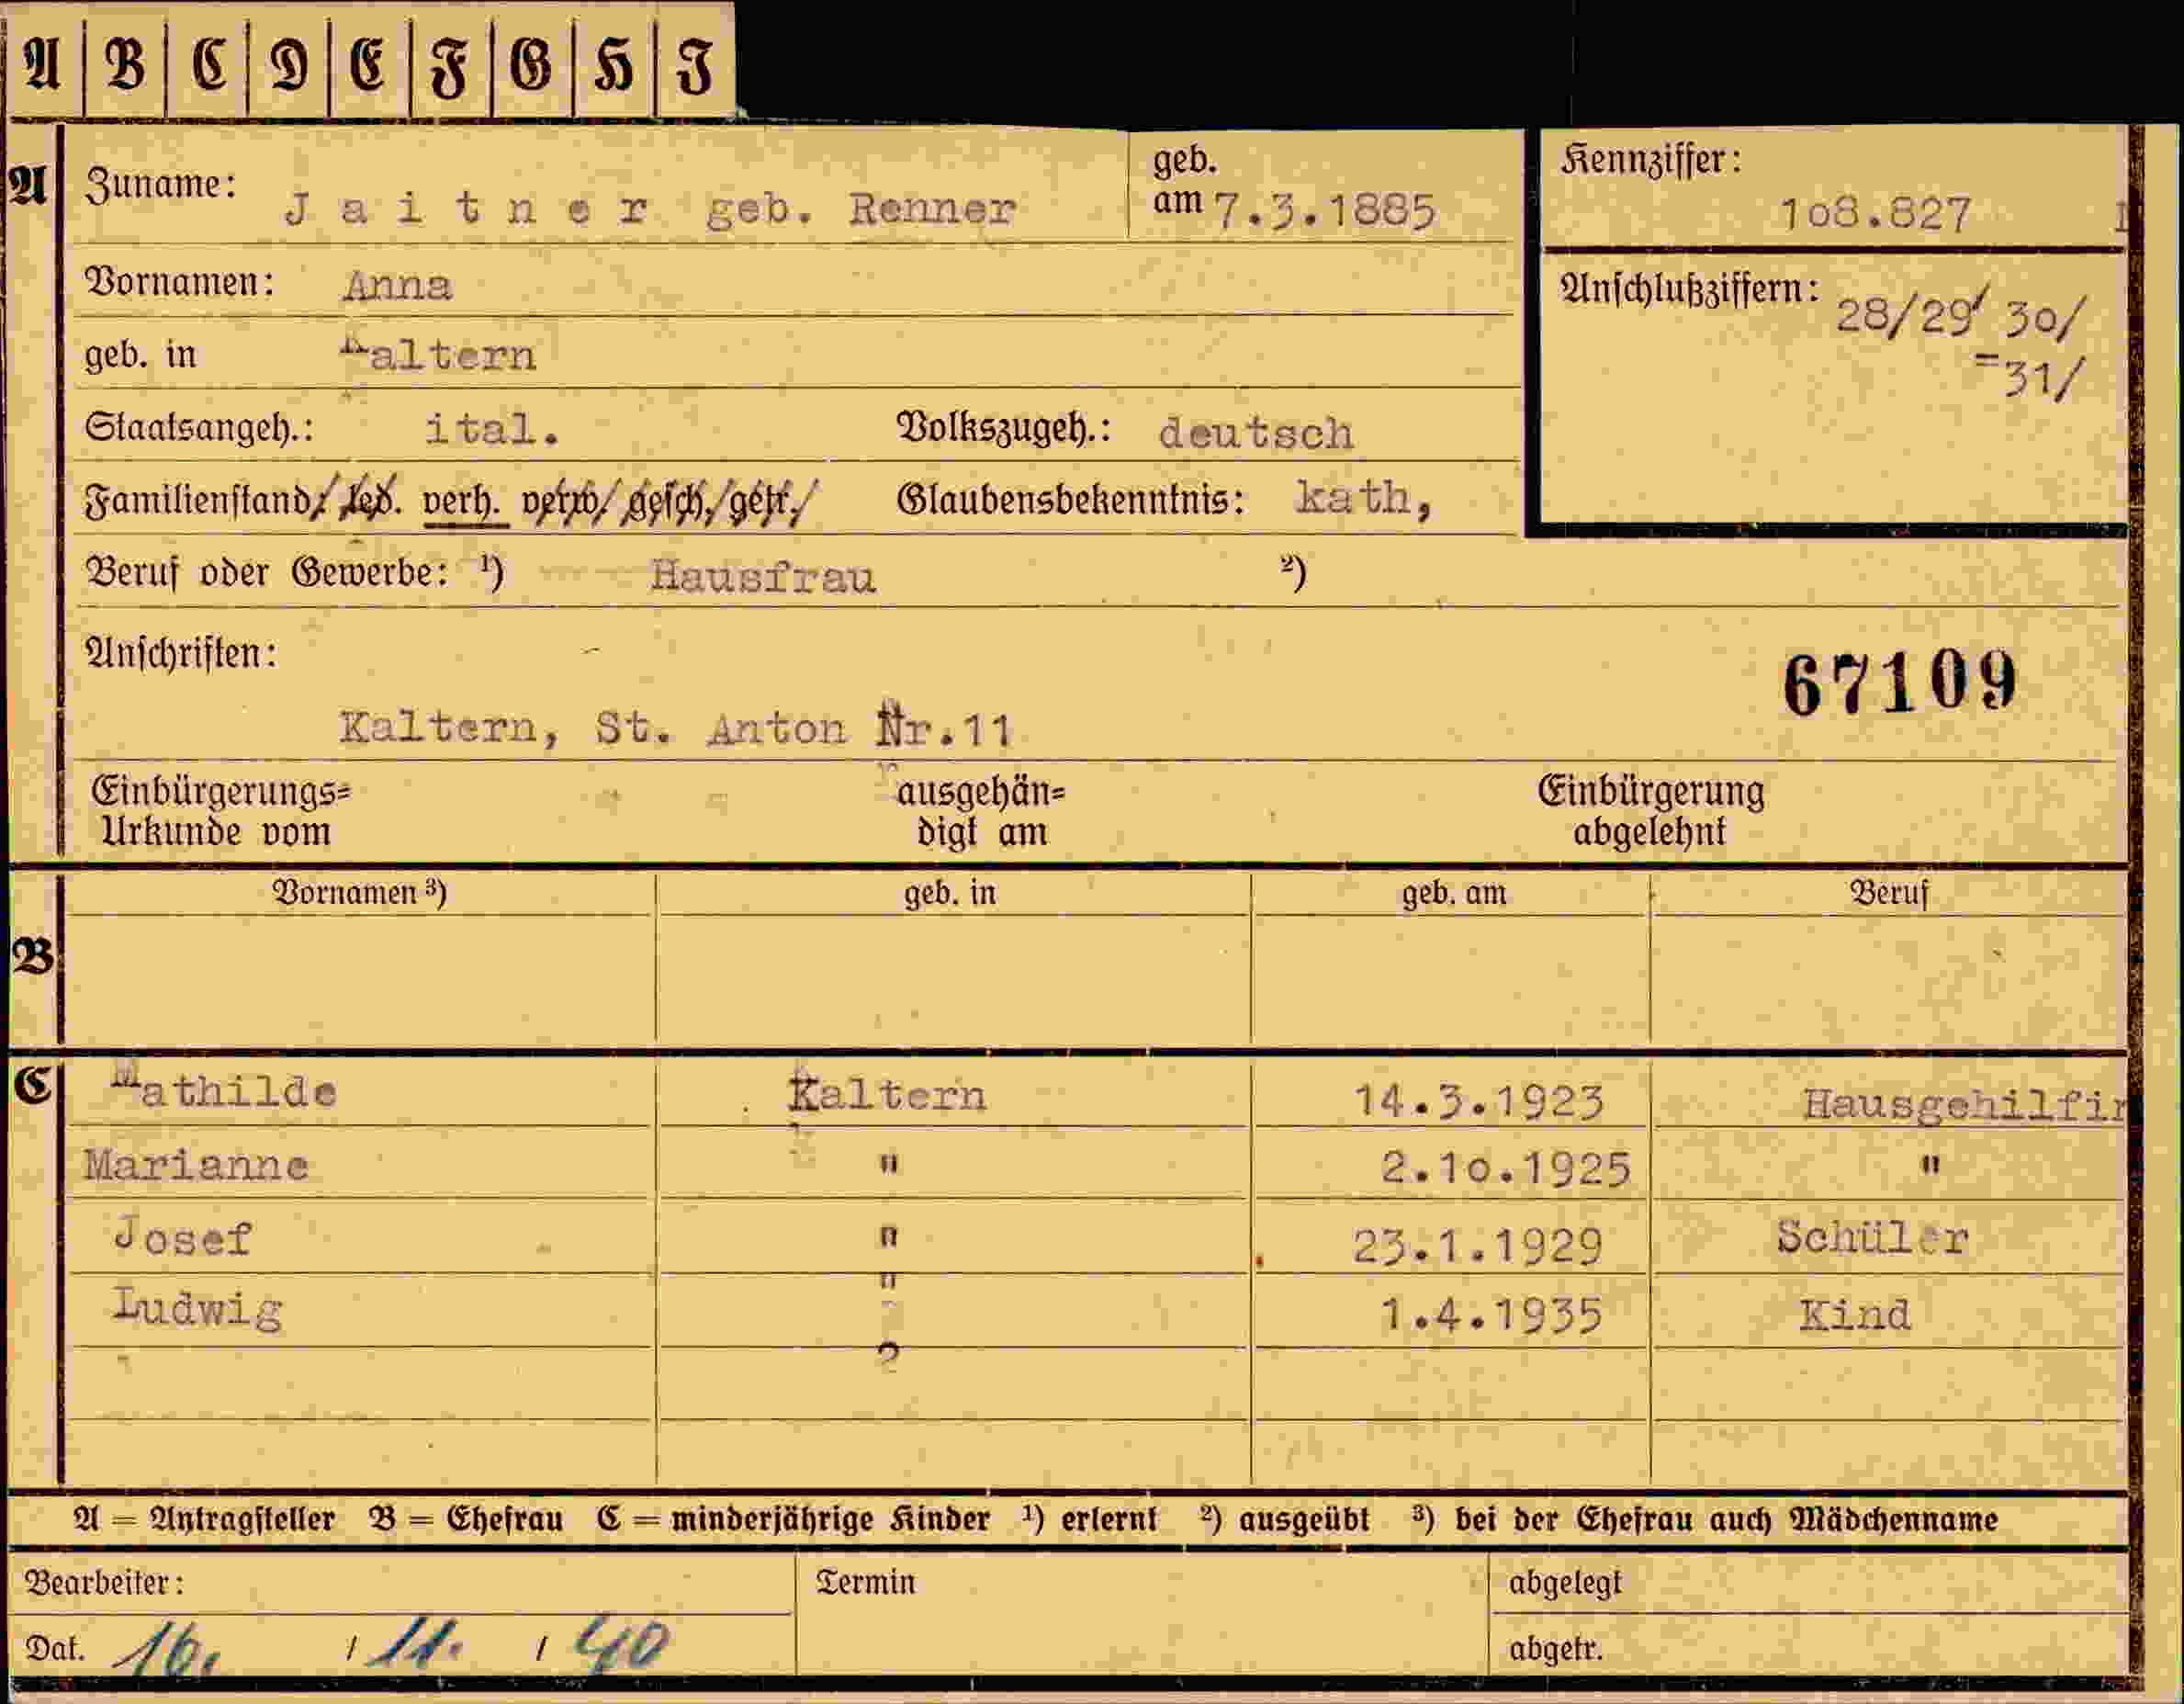 A B C D E F G H I
A Zuname: Jaitner geb. Renner geb. am 7.3.1885 Kennziffer: 108.827
Vornamen: Anna Anschlußziffern: 28/29/ 30/
geb. in Kaltern =31/
Staatsangeh.: ital. Volkszugeh.: deutsch
Familienstand/ led. verh. verw/ gesch./getr./ Glaubensbekenntnis: kath,
Beruf oder Gewerbe: ¹) Hausfrau ²)
Anschriften: 67109
Kaltern, St. Anton Nr.11
Einbürgerungs= ausgehän= Einbürgerung
Urkunde vom digt am abgelehnt
Vornamen ³) geb. in geb. am Beruf
B
C Mathilde Kaltern 14.3.1923 Hausgehilfin
Marianne " 2.10.1925 "
Josef " 23.1.1929 Schüler
Ludwig " 1.4.1935 Kind
?
A = Antragsteller B = Ehefrau C = minderjährige Kinder ¹) erlernt ²) ausgeübt ³) bei der Ehefrau auch Mädchenname
Bearbeiter: Termin abgelegt
Dat. 16. / 11. / 40 abgetr.